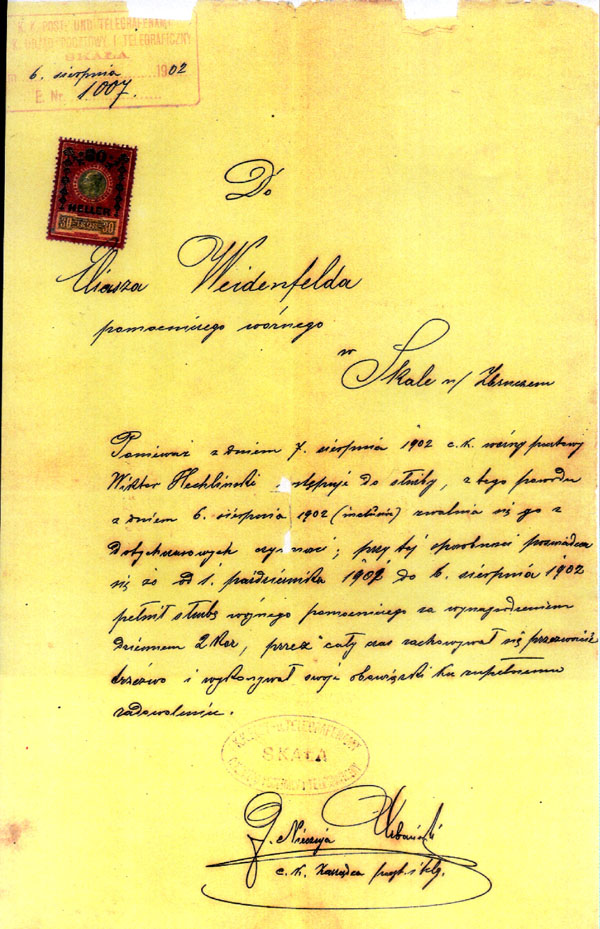 K. K. POST- UND TELEGRAFENAMT
URZĄD POCZTOWY I TELEGRAFICZNY
SKAŁA
6. sierpnia 1902
E. Nr. 1007.
30
HELLER
30 1898 30
Do
Eliasza Weidenfelda
pomocniczego woźnego
w
Skale n/ Zbruczem
Ponieważ z dniem 7. sierpnia 1902 c.k. woźny pocztowy
Wiktor wstępuje do służby, z tego powodu
z dniem 6. sierpnia 1902 (inclusiv) zwalnia się go z
dotychczasowych czynności; przy tej sposobności poświadcza
się że od 1. października 1902 do 6. sierpnia 1902
pełnił służbę woźnego pomocniczego za wynagrodzeniem
dziennem 2 Kor, przez cały czas zachowywał się przyzwoicie
trzeźwo i wykonywał swoje obowiązki ku zupełnemu
zadowoleniu.
SKAŁA
Urbański
c. k. Zarządca poczt. i telg.